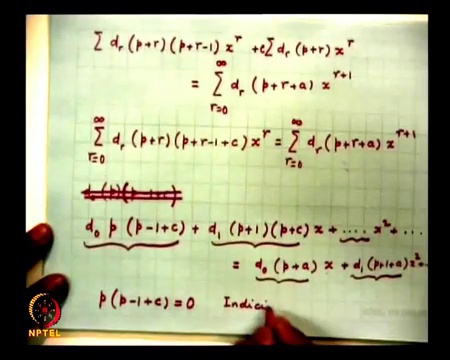 ∑ d_r (p+r)(p+r-1) x^r + c∑ d_r (p+r) x^r
= ∑_{r=0}^{∞} d_r (p+r+a) x^{r+1}
∑_{r=0}^{∞} d_r (p+r)(p+r-1+c) x^r = ∑_{r=0}^{∞} d_r (p+r+a) x^{r+1}
d_0 p (p-1+c) + d_1 (p+1)(p+c) x + .... x^2 + ...
= d_0 (p+a) x + d_1 (p+1+a) x^2 ..
p (p-1+c) = 0 Indici
NPTEL